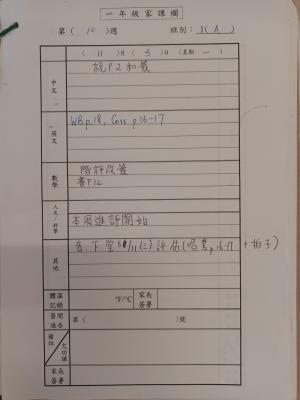 一年級家課欄
第( 10 )週 班別: 1(A)
( 11 )月( 3 )日 (星期 一 )
中文
說P2和簽
英文
WB p.18, Corr p.16-17
數學
階評改簽
書P12
人文/科學
本周進評開始
其他
音:下堂 5/11(三)評估(唱書p.16-17 + 拍子)
體溫記錄 °F/°C 家長簽署
簽閱通告 第( )號
備註 欠功課
家長簽署